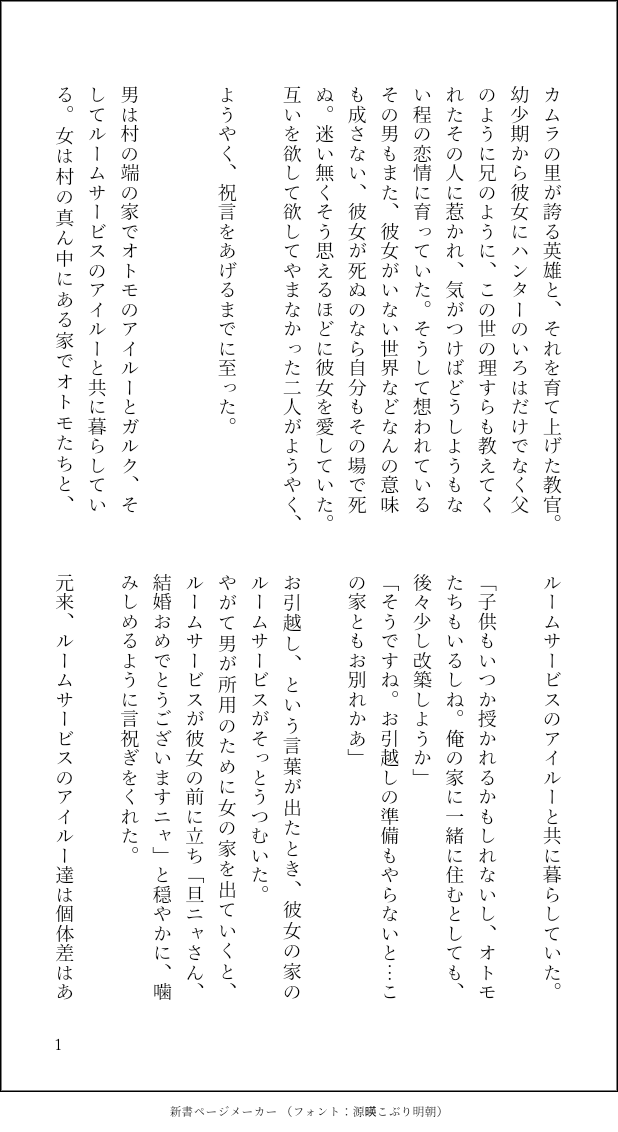 カムラの里が誇る英雄と、それを育て上げた教官。
幼少期から彼女にハンターのいろはだけでなく父
のように兄のように、この世の理すらも教えてく
れたその人に惹かれ、気がつけばどうしようもな
い程の恋情に育っていた。そうして想われている
その男もまた、彼女がいない世界などなんの意味
も成さない、彼女が死ぬのなら自分もその場で死
ぬ。迷い無くそう思えるほどに彼女を愛していた。
互いを欲して欲してやまなかった二人がようやく、
ようやく、祝言をあげるまでに至った。
男は村の端の家でオトモのアイルーとガルク、そ
してルームサービスのアイルーと共に暮らしてい
る。女は村の真ん中にある家でオトモたちと、
ルームサービスのアイルーと共に暮らしていた。
「子供もいつか授かれるかもしれないし、オトモ
たちもいるしね。俺の家に一緒に住むとしても、
後々少し改築しようか」
「そうですね。お引越しの準備もやらないと…こ
の家ともお別れかあ」
お引越し、という言葉が出たとき、彼女の家の
ルームサービスがそっとうつむいた。
やがて男が所用のために女の家を出ていくと、
ルームサービスが彼女の前に立ち「旦ニャさん、
結婚おめでとうございますニャ」と穏やかに、噛
みしめるように言祝ぎをくれた。
元来、ルームサービスのアイルー達は個体差はあ
1
新書ページメーカー（フォント：源暎こぶり明朝）